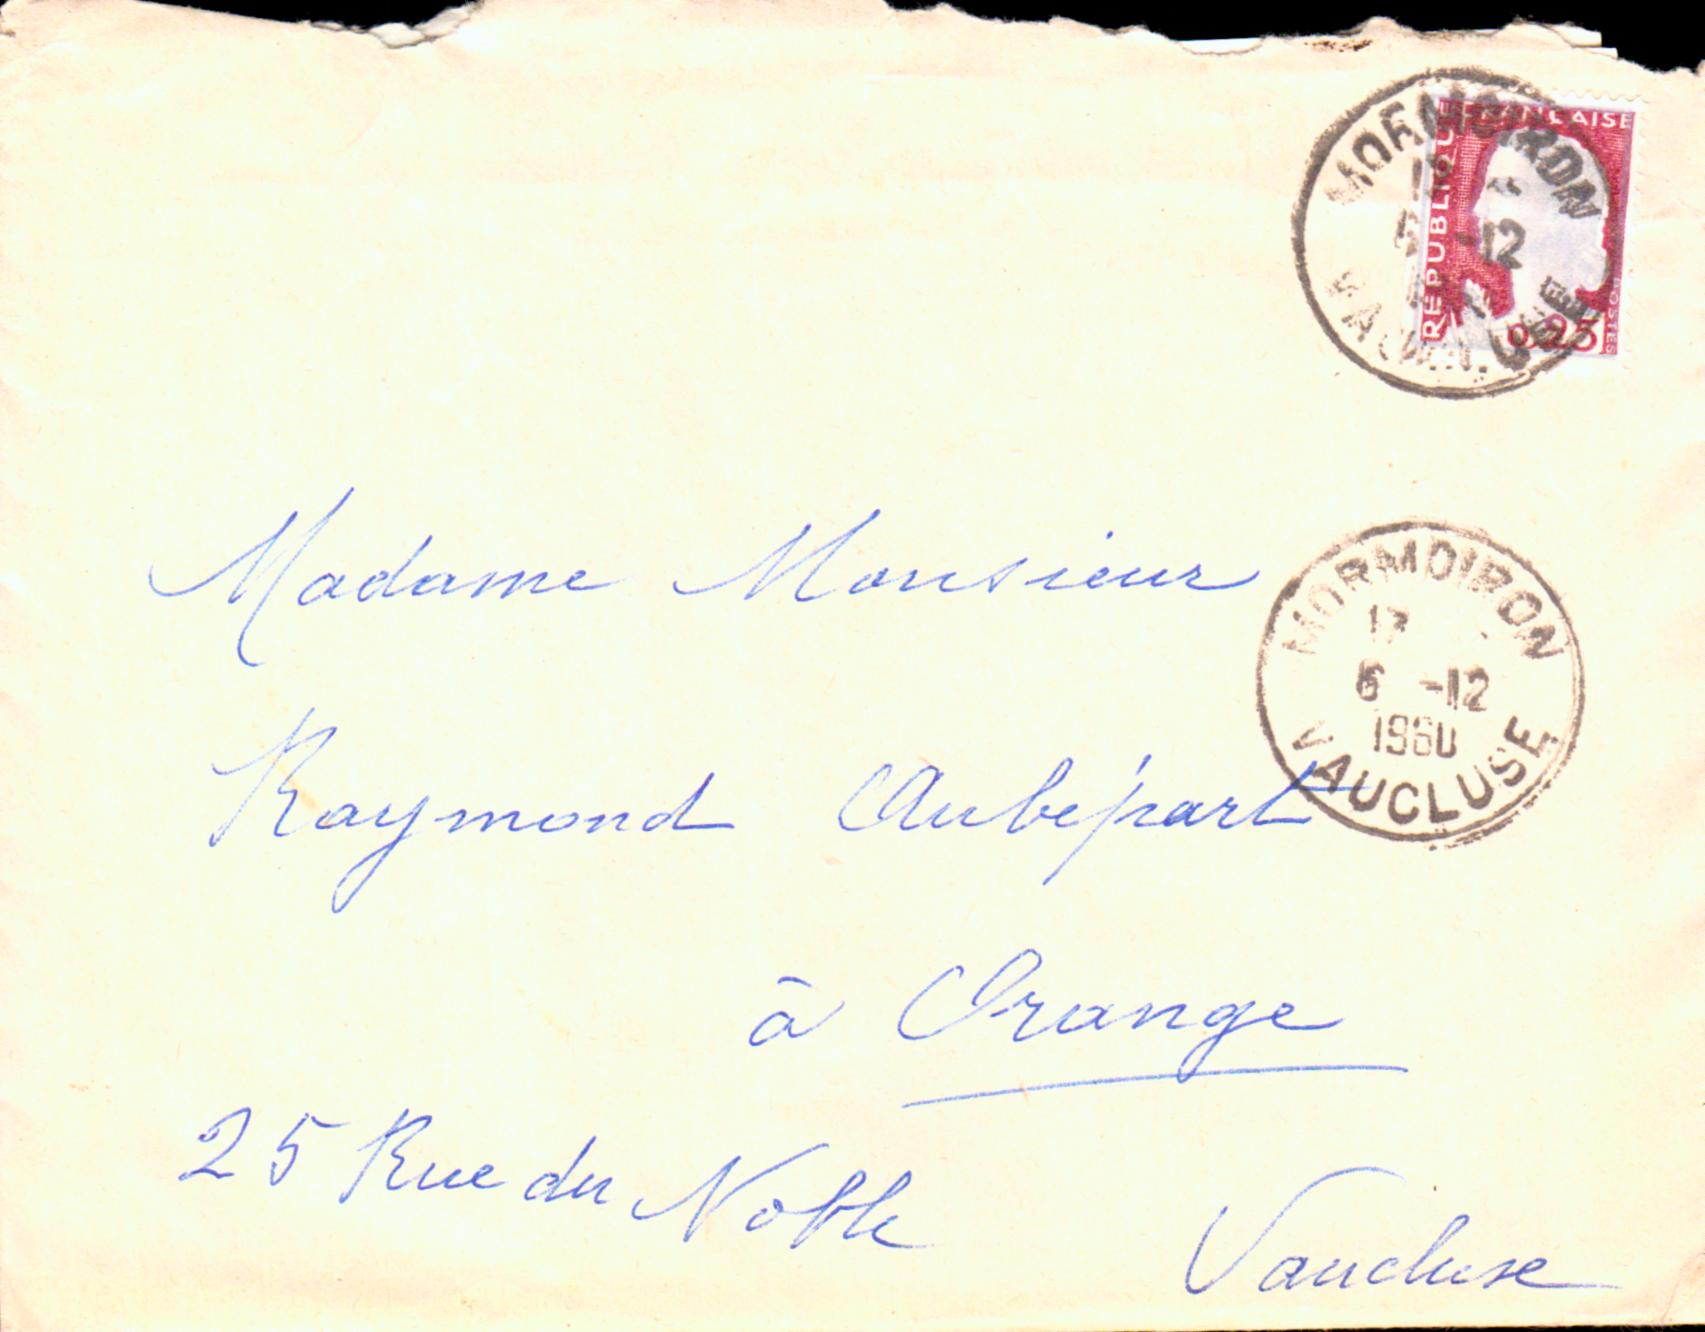 MORMOIRON
-12
VAUCLUSE
REPUBLIQUE FRANÇAISE
POSTES
0,25
Madame Monsieur
MORMOIRON
17
6 -12
1960
VAUCLUSE
Raymond Aubépart
à Orange
25 Rue du Noble
Vaucluse